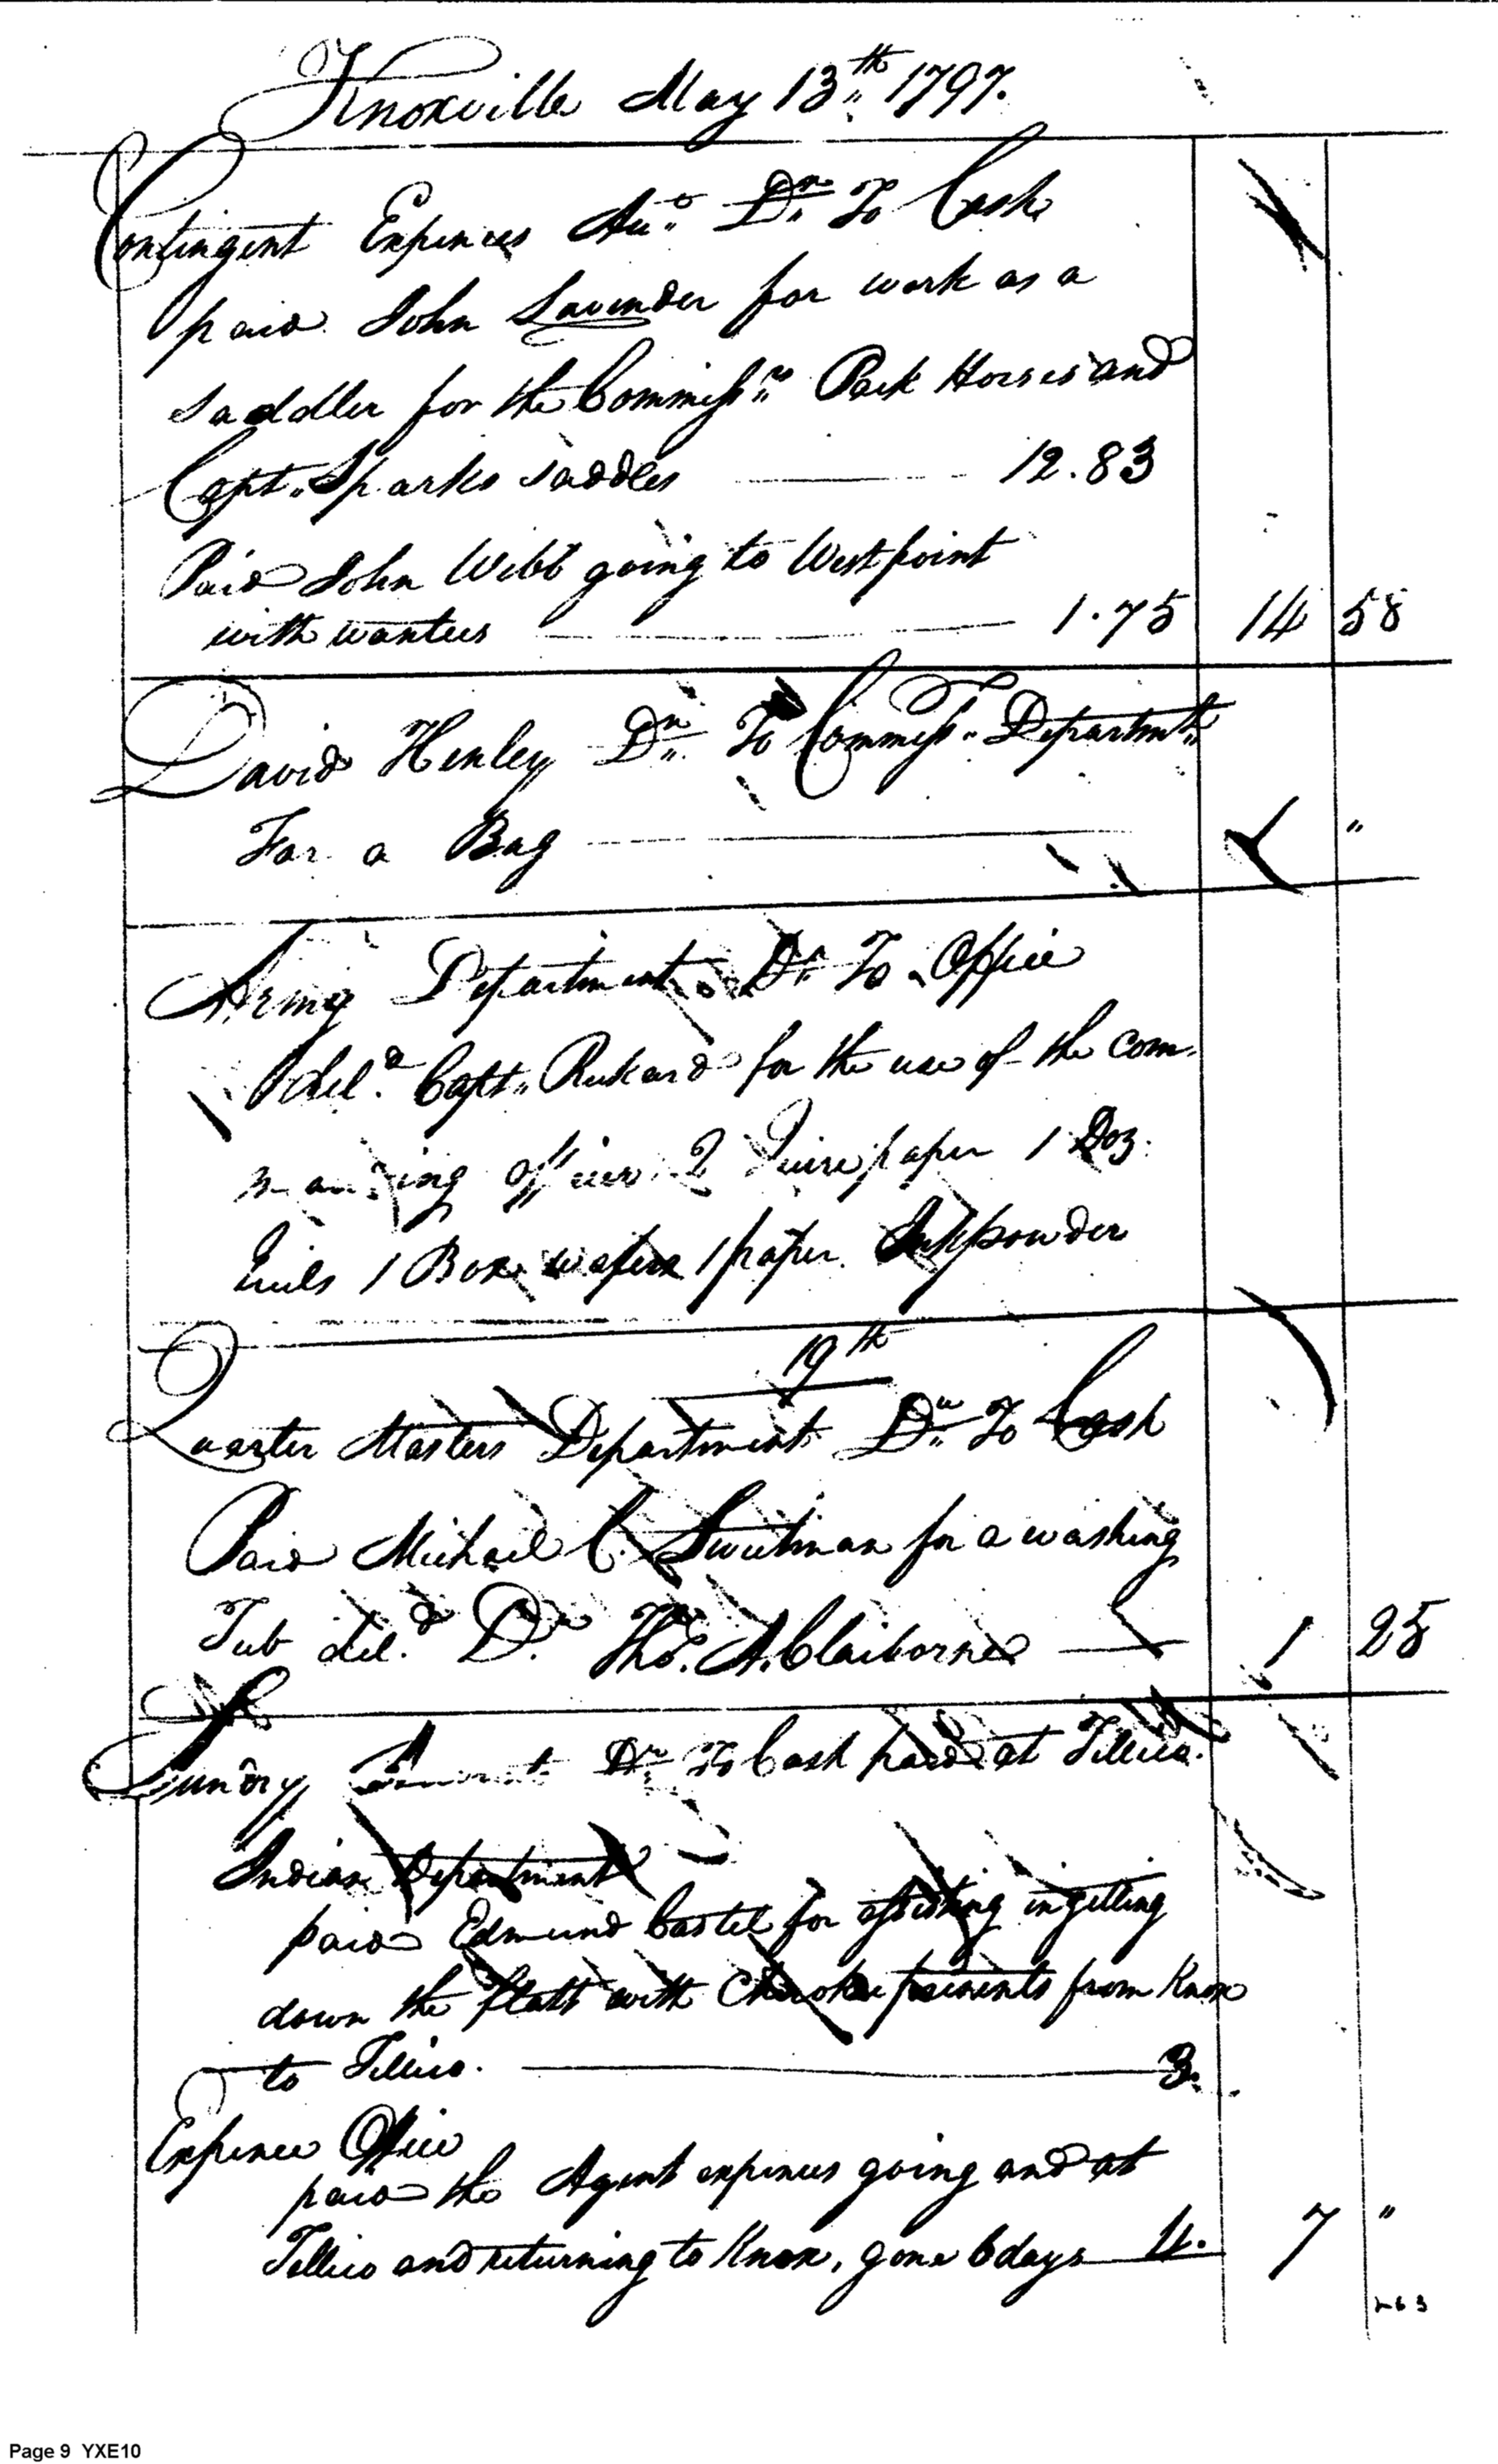 Knoxville May 13th 1797.
Contingent Expences Acco. Dr. To Cash
paid John Lavender for work as a
saddler for the Commissrs. Pack Horses and
Capt. Sparks saddles 12.83
Paid John Webb going to Westpoint
with wantees 1.75 14 58
David Henley Dr. To Commiss. Departmt.
For a Bag "
Army Department Dr. To Office
deld. Capt. Rickard for the use of the com-
manding officer 2 Quire paper 1 Doz.
Quils 1 Box wafers 1 paper Inkpowder
19th
Quarter Masters Department Dr. To Cash
Paid Michael C. Sweetman for a washing
Tub deld. Dr. Thos. A. Claiborne 1 25
Sundry Dr. To Cash paid at Tellico.
Indian Department
paid Edmund Castel for assisting in getting
down the flatt with Cherokee presents from Knox
to Tellico. 3.
Expence Office
paid the Agent expences going and at
Tellico and returning to Knox, gone 6 days 4. 7 "
263
Page 9 YXE10